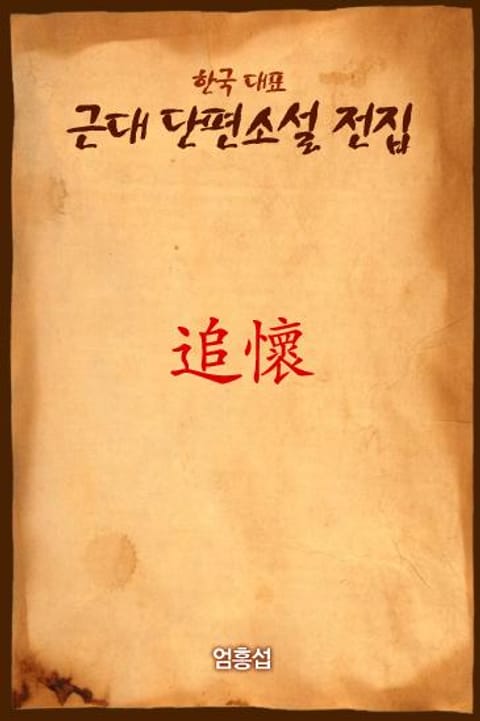 한국 대표
근대 단편소설 전집
追懷
엄흥섭